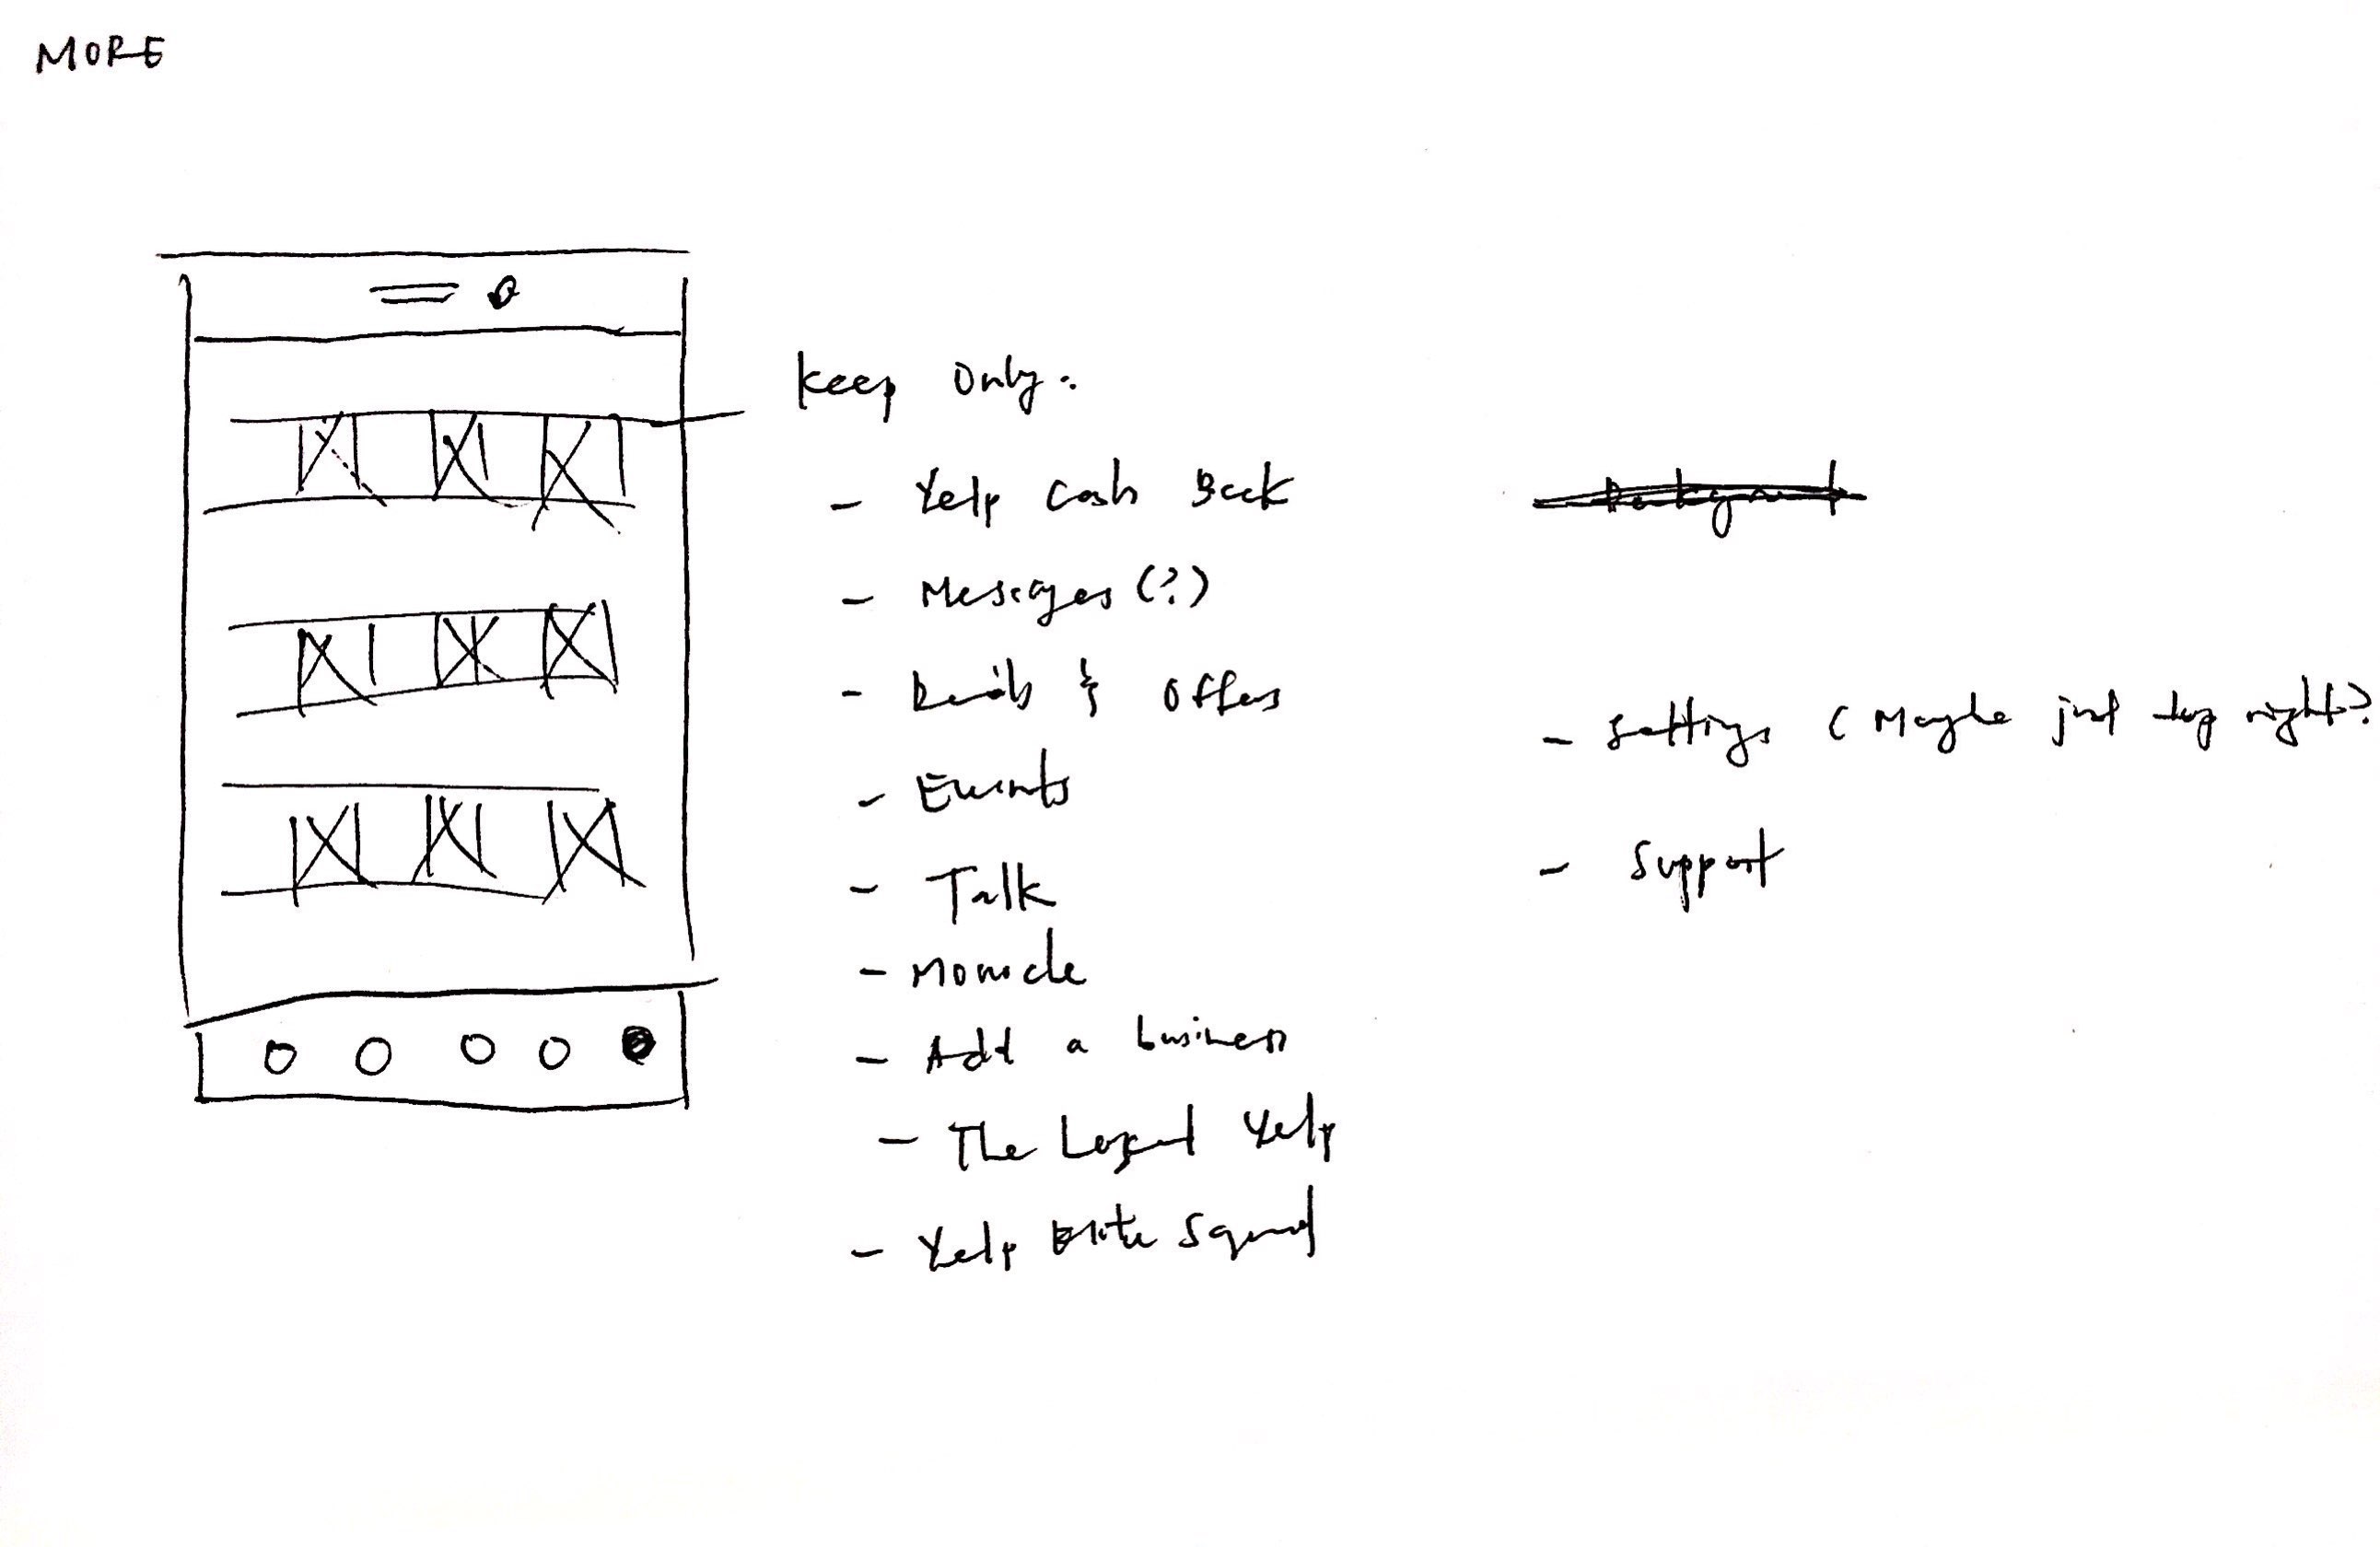 MORE
Keep Only:
- Yelp Cash Back
- Messages (?)
- Deals & Offers
- Events
- Talk
- Monocle
- Add a business
- The Local Yelp
- Yelp Elite Squad
- Settings ( Maybe just top right?
- Support